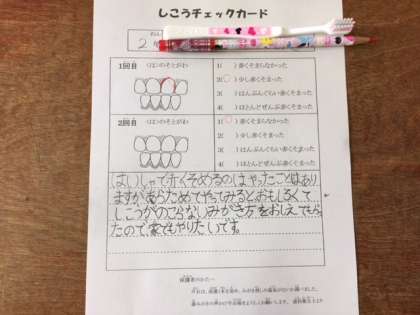 しこうチェックカード
2
1回目
〈は〉のそとがわ
1( )赤くそまらなかった
2(○)少し赤くそまった
3( )はんぶんぐらい赤くそまった
4( )ほとんどぜんぶ赤くそまった
2回目
〈は〉のそとがわ
1(○)赤くそまらなかった
2( )少し赤くそまった
3( )はんぶんぐらい赤くそまった
4( )ほとんどぜんぶ赤くそまった
はいしゃで赤くそめるのはやったことはあり
ますがあらためてやってみるとおもしろくて
しこうがのこらないみがき方をおしえてもらっ
たので、家でもやりたいです。
保護者のかたへ